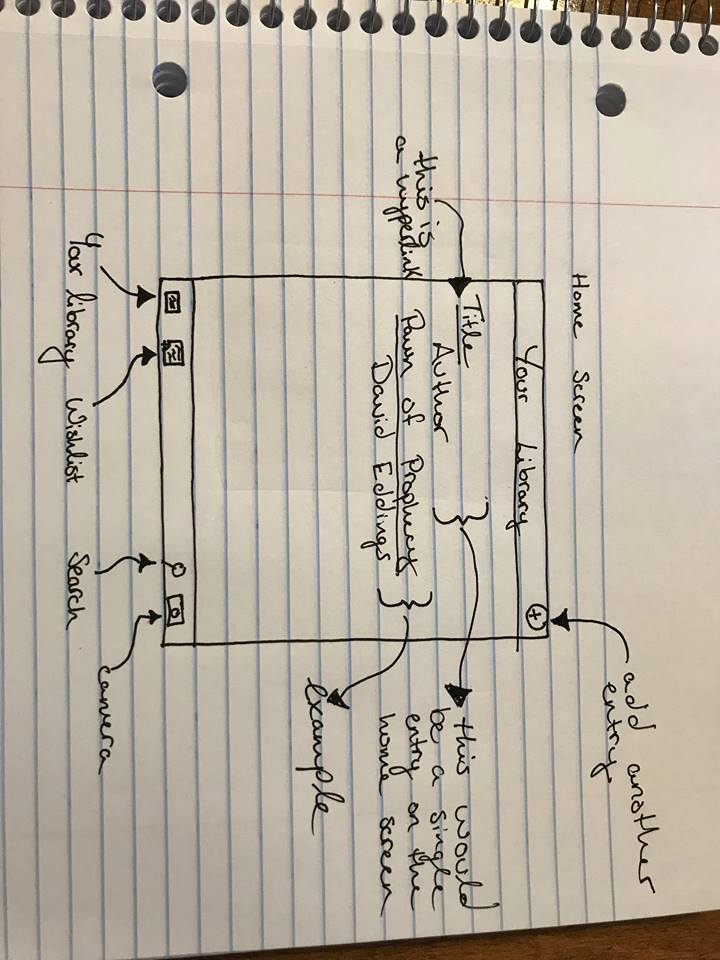 add another
entry.
Home Screen
Your Library +
Title
Author
this is
a hyperlink
this would
be a single
entry on the
home screen
Pawn of Prophecy
David Eddings
example
Your library
Wishlist
Search
camera